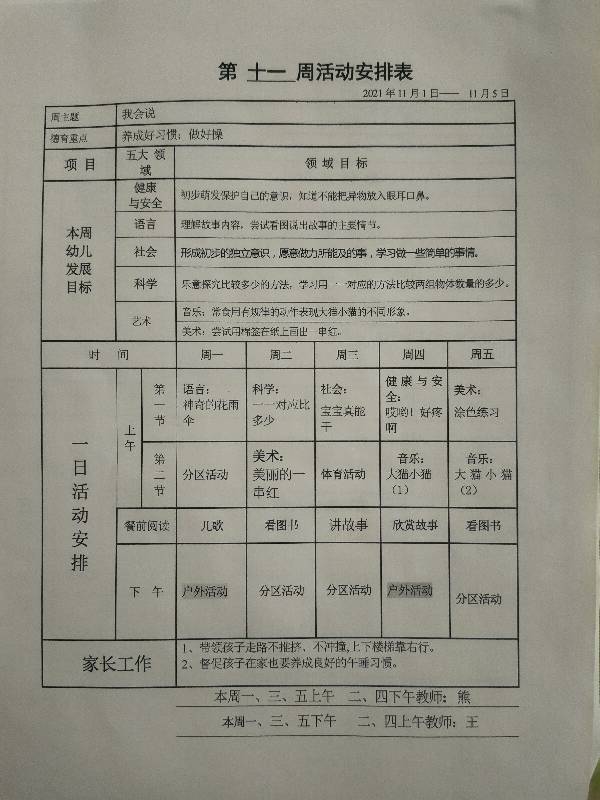 第 十一 周活动安排表
2021年11月1日—— 11月5日
周主题 我会说
德育重点 养成好习惯；做好操
项 目 五大 领域 领 域 目 标
本周幼儿发展目标
健康与安全 初步萌发保护自己的意识，知道不能把异物放入眼耳口鼻。
语言 理解故事内容，尝试看图说出故事的主要情节。
社会 形成初步的独立意识，愿意做力所能及的事，学习做一些简单的事情。
科学 乐意探究比较多少的方法，学习用一一对应的方法比较两组物体数量的多少。
艺术 音乐：常食用有规律的动作表现大猫小猫的不同形象。
美术：尝试用棉签在纸上画出一串红。
时 间 周一 周二 周三 周四 周五
一日活动安排
上午
第一节 语言：神奇的花雨伞 科学：一一对应比多少 社会：宝宝真能干 健康与安全：哎哟！好疼啊 美术：涂色练习
第二节 分区活动 美术：美丽的一串红 体育活动 音乐：大猫小猫（1） 音乐：大猫小猫（2）
餐前阅读 儿歌 看图书 讲故事 欣赏故事 看图书
下 午 户外活动 分区活动 分区活动 户外活动 分区活动
家长工作
1、带领孩子走路不推挤、不冲撞,上下楼梯靠右行。
2、督促孩子在家也要养成良好的午睡习惯。
本周一、三、五上午 二、四下午教师：熊
本周一、三、五下午 二、四上午教师：王